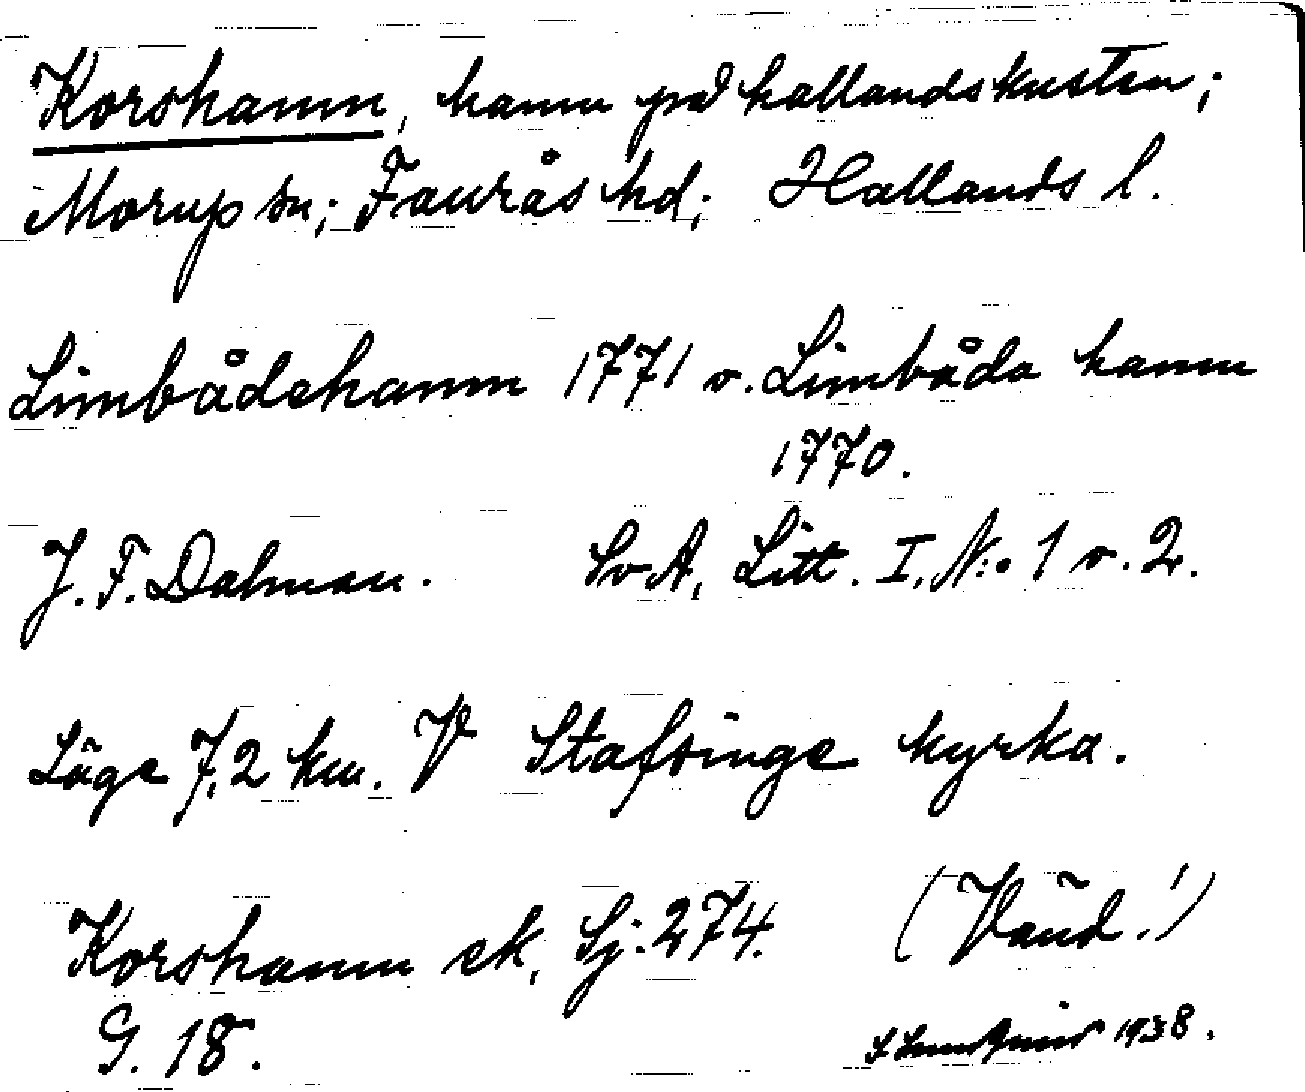 Korshamn, hamn på hallandskusten;
Morup sn; Faurås hd; Hallands l.
Limbådehamn 1771 o. Limbåda hamn
1770.
J. F. Dalman. SvA, Litt. I, N:o 1 o. 2.
Läge 7,2 km. V Stafsinge kyrka.
Korshamn ek, Sj. 274. (Vänd!)
G. 18.
1938.